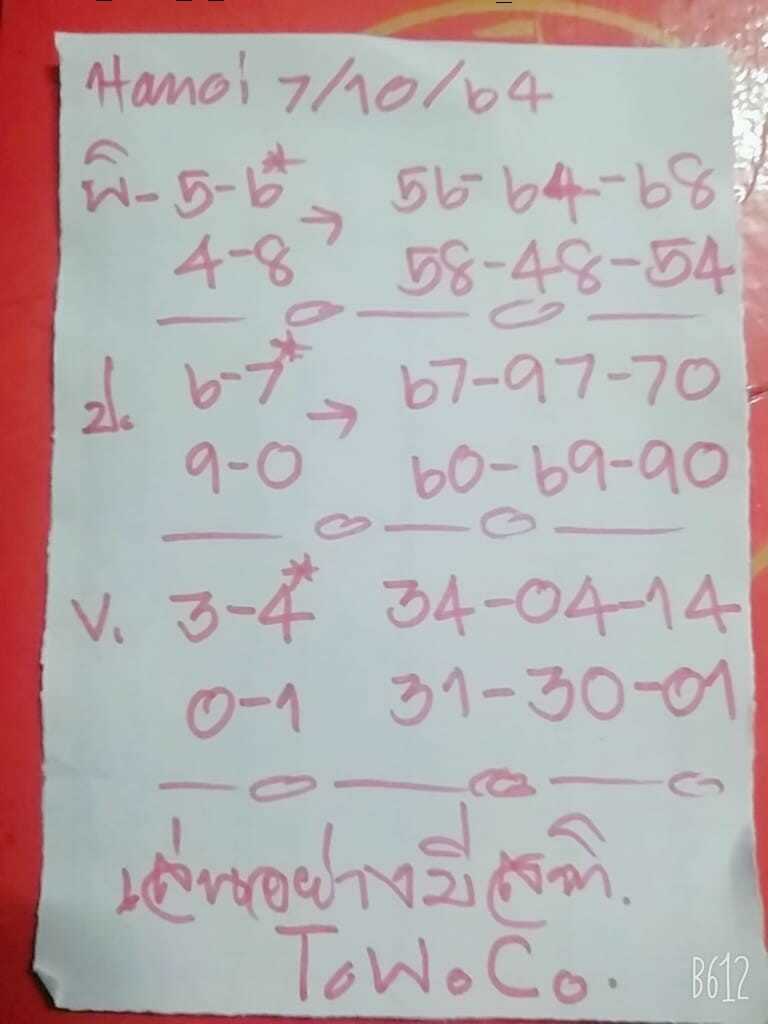 Hanoi 7/10/64
พิ- 5-6* → 56-64-68
4-8 58-48-54
ป. 6-7* → 67-97-70
9-0 60-69-90
V. 3-4* 34-04-14
0-1 31-30-01
เล่นอย่างมีสติ.
T.W.Co.
B612